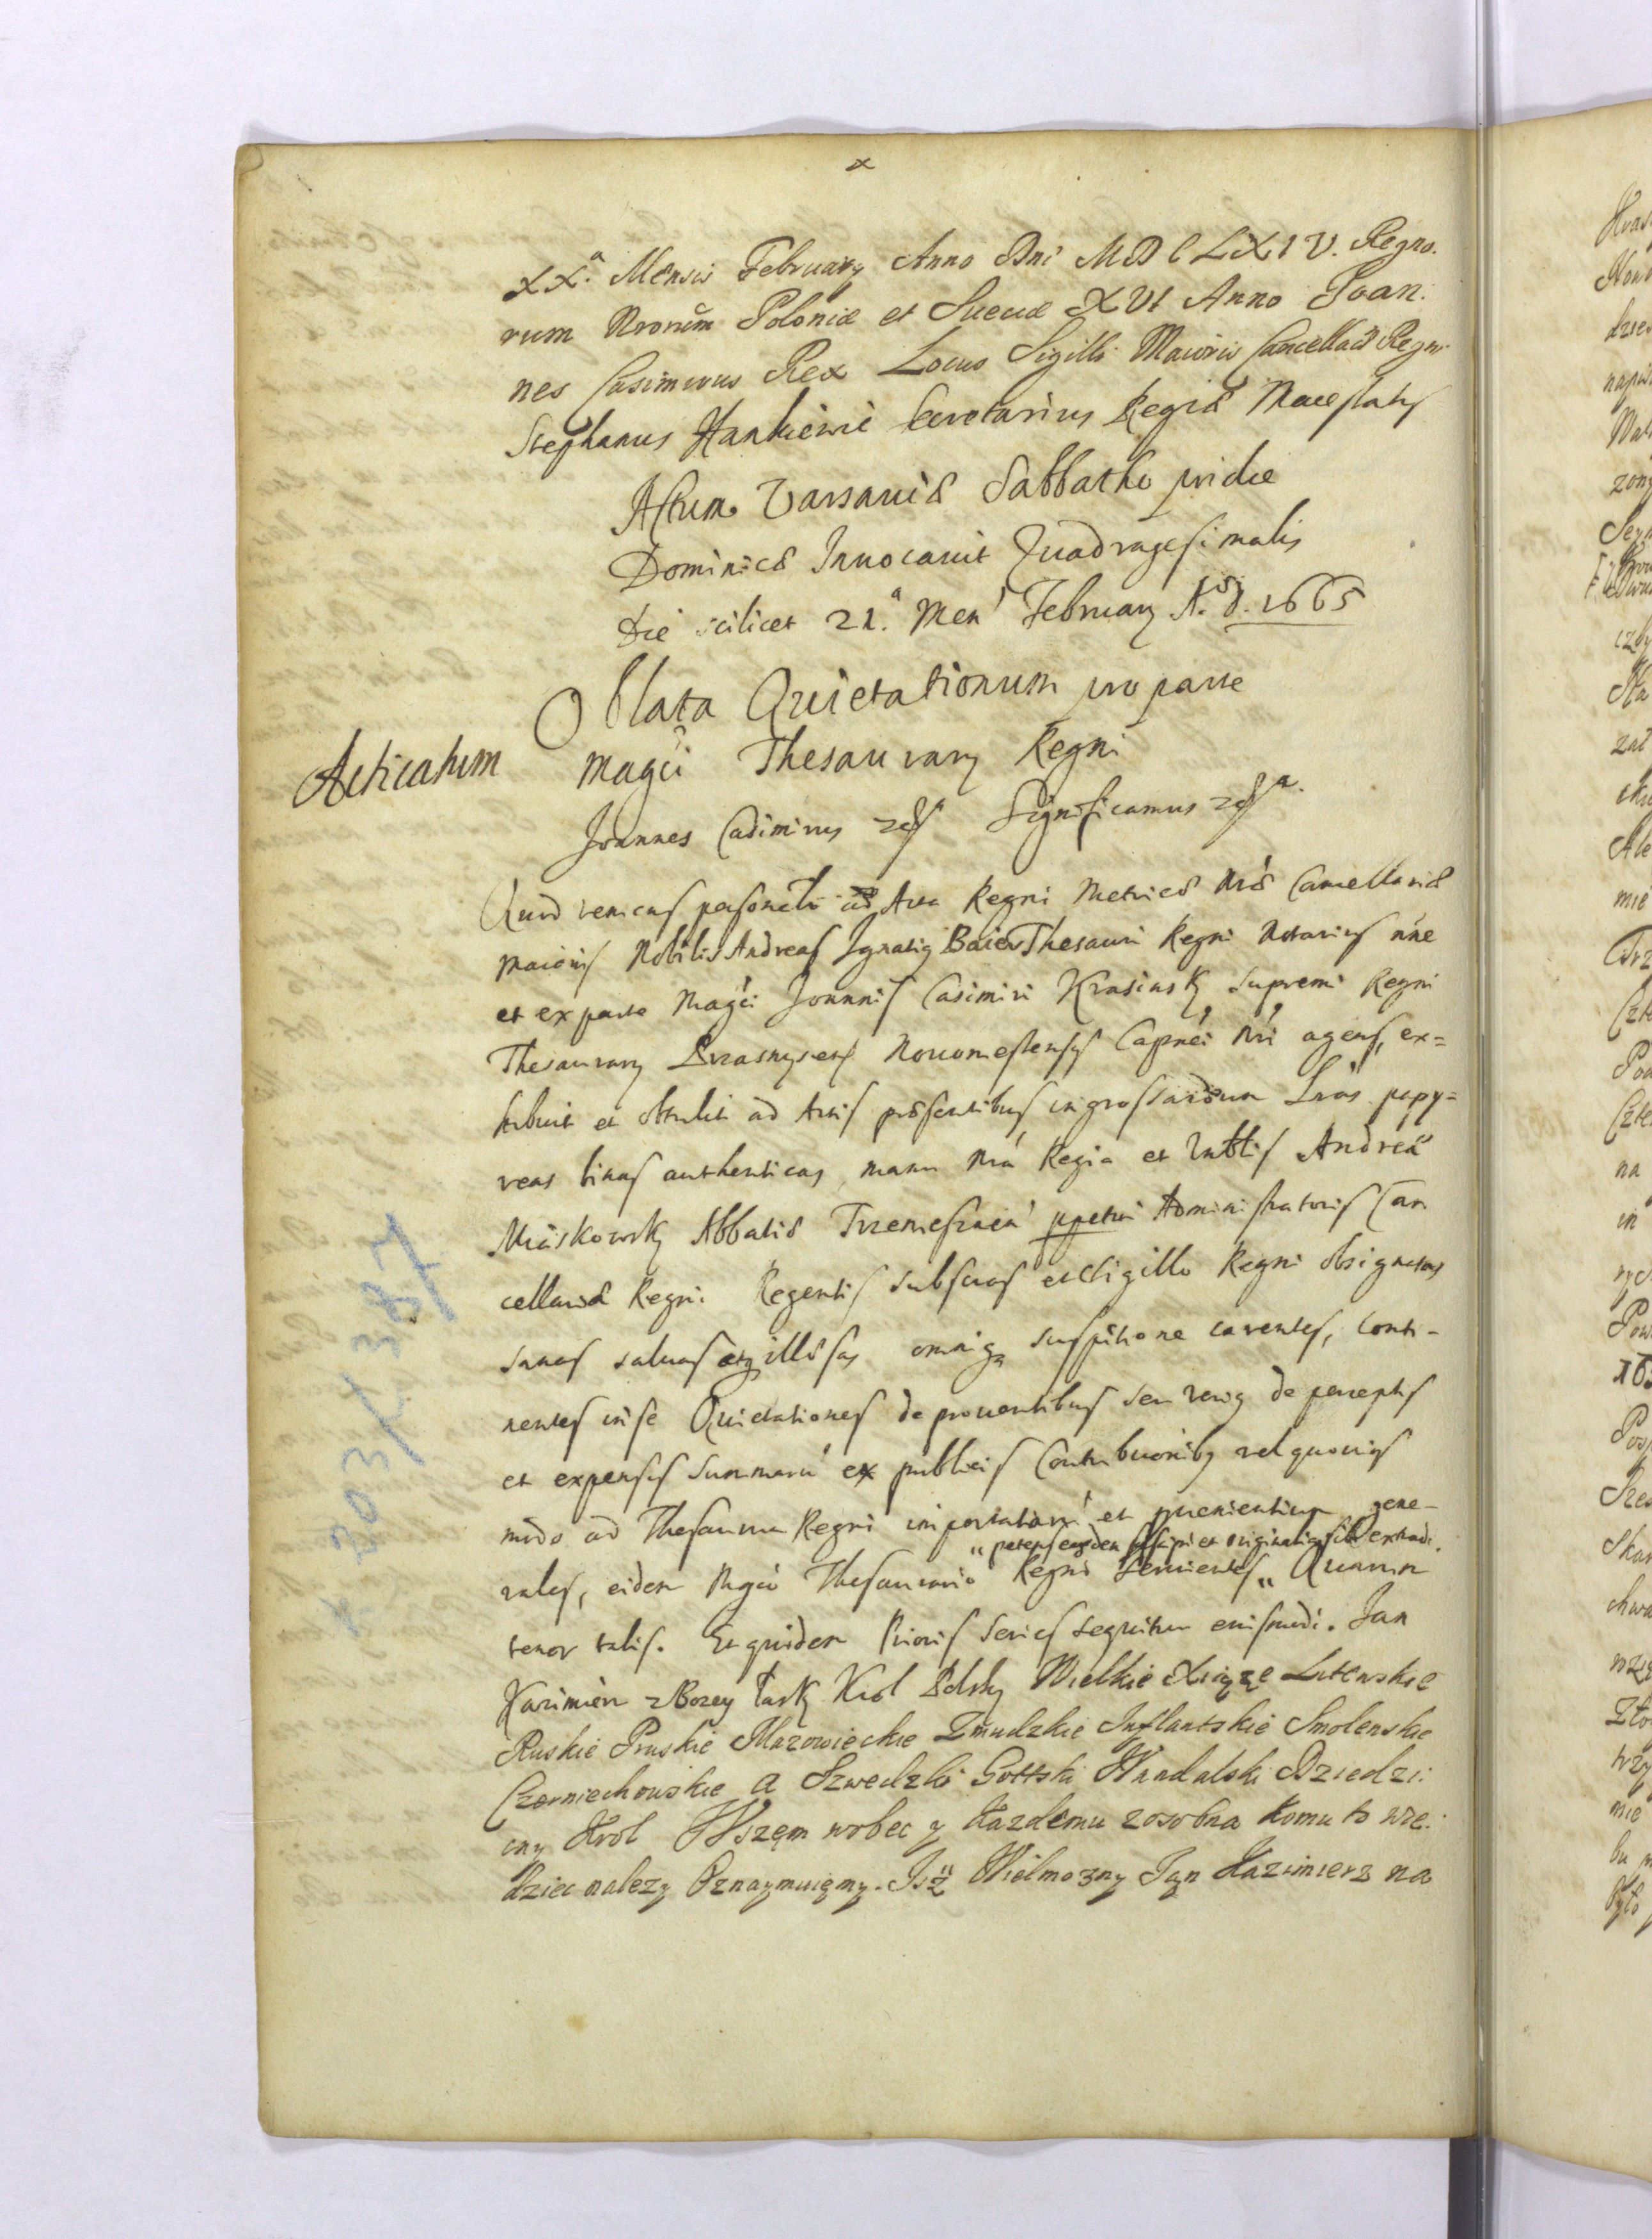 XX.ª Mensis February Anno Dni MDCLXIV. Regno.
rum Nrorum Poloniæ et Sueciæ XVI Anno Joan:
nes Casimirus Rex Locus Sigilli Maioris Cancellariæ Regni
Stephanus Hankiewic Secretarius Regiæ Maiestatis
Actum Varsaviæ Sabbatho pridie
Dominicæ Invocavit Quadragesimalis
die scilicet 21.ª Men February A.º d. 1665
Oblata Quietationum pro parte
Acticatum
Magci Thesaurary Regni
Joannes Casimirus Significamus
Quod veniens personaliter ad Acta Regni Metrices Nræ Cancellariæ
Maioris Nobilis Andreas Ignatius Baier Thesauri Regni Notarius nne
et ex parte Magci Joannis Casimiri Krasinsky Supremi Regni
Thesaurary Przasnysens Novomestensis Capnei Nri agens, ex=
hibuit et obtulit ad Actis præsentibus ingrossandum Lras papy=
reas binas authenticas manu Nra Regia et Andreæ
Miaskowsky Abbatis Trzemesznen ppetui Administratoris Can
cellariæ Regni Regentis subscras et Sigillo Regni obsignatas
sanas salvas et illæsas omniq suspitione carentes, conti-
nentes in se Quietationes de proventibus seu de perceptis
et expensis summaru ex publicis Contribuonibq vel quovis
modo ad Thesaurum Regni importataru et pvenientium gene-
" petens easdem suscipi et originalia sibi extradi.
rales, eidem Mgco Thesaurario Regni servientes " Quarum
tenor talis. Et quidem Prioris series sequitur eiusmodi. Jan
Kazimierz z Bozey łasky Krol Polsky Wielkie Xiąze Litewskie
Ruskie Pruskie Mazowieckie Zmudzkie Inflantskie Smolenskie
Czerniechowskie a Szwedzki Gottski Wandalski Dziedzi:
czny Krol Wszem wobec y kazdemu zosobna komu to wie:
dziec nalezy Oznaymuięmy. Isz Wielmozny Jan Kazimierz na